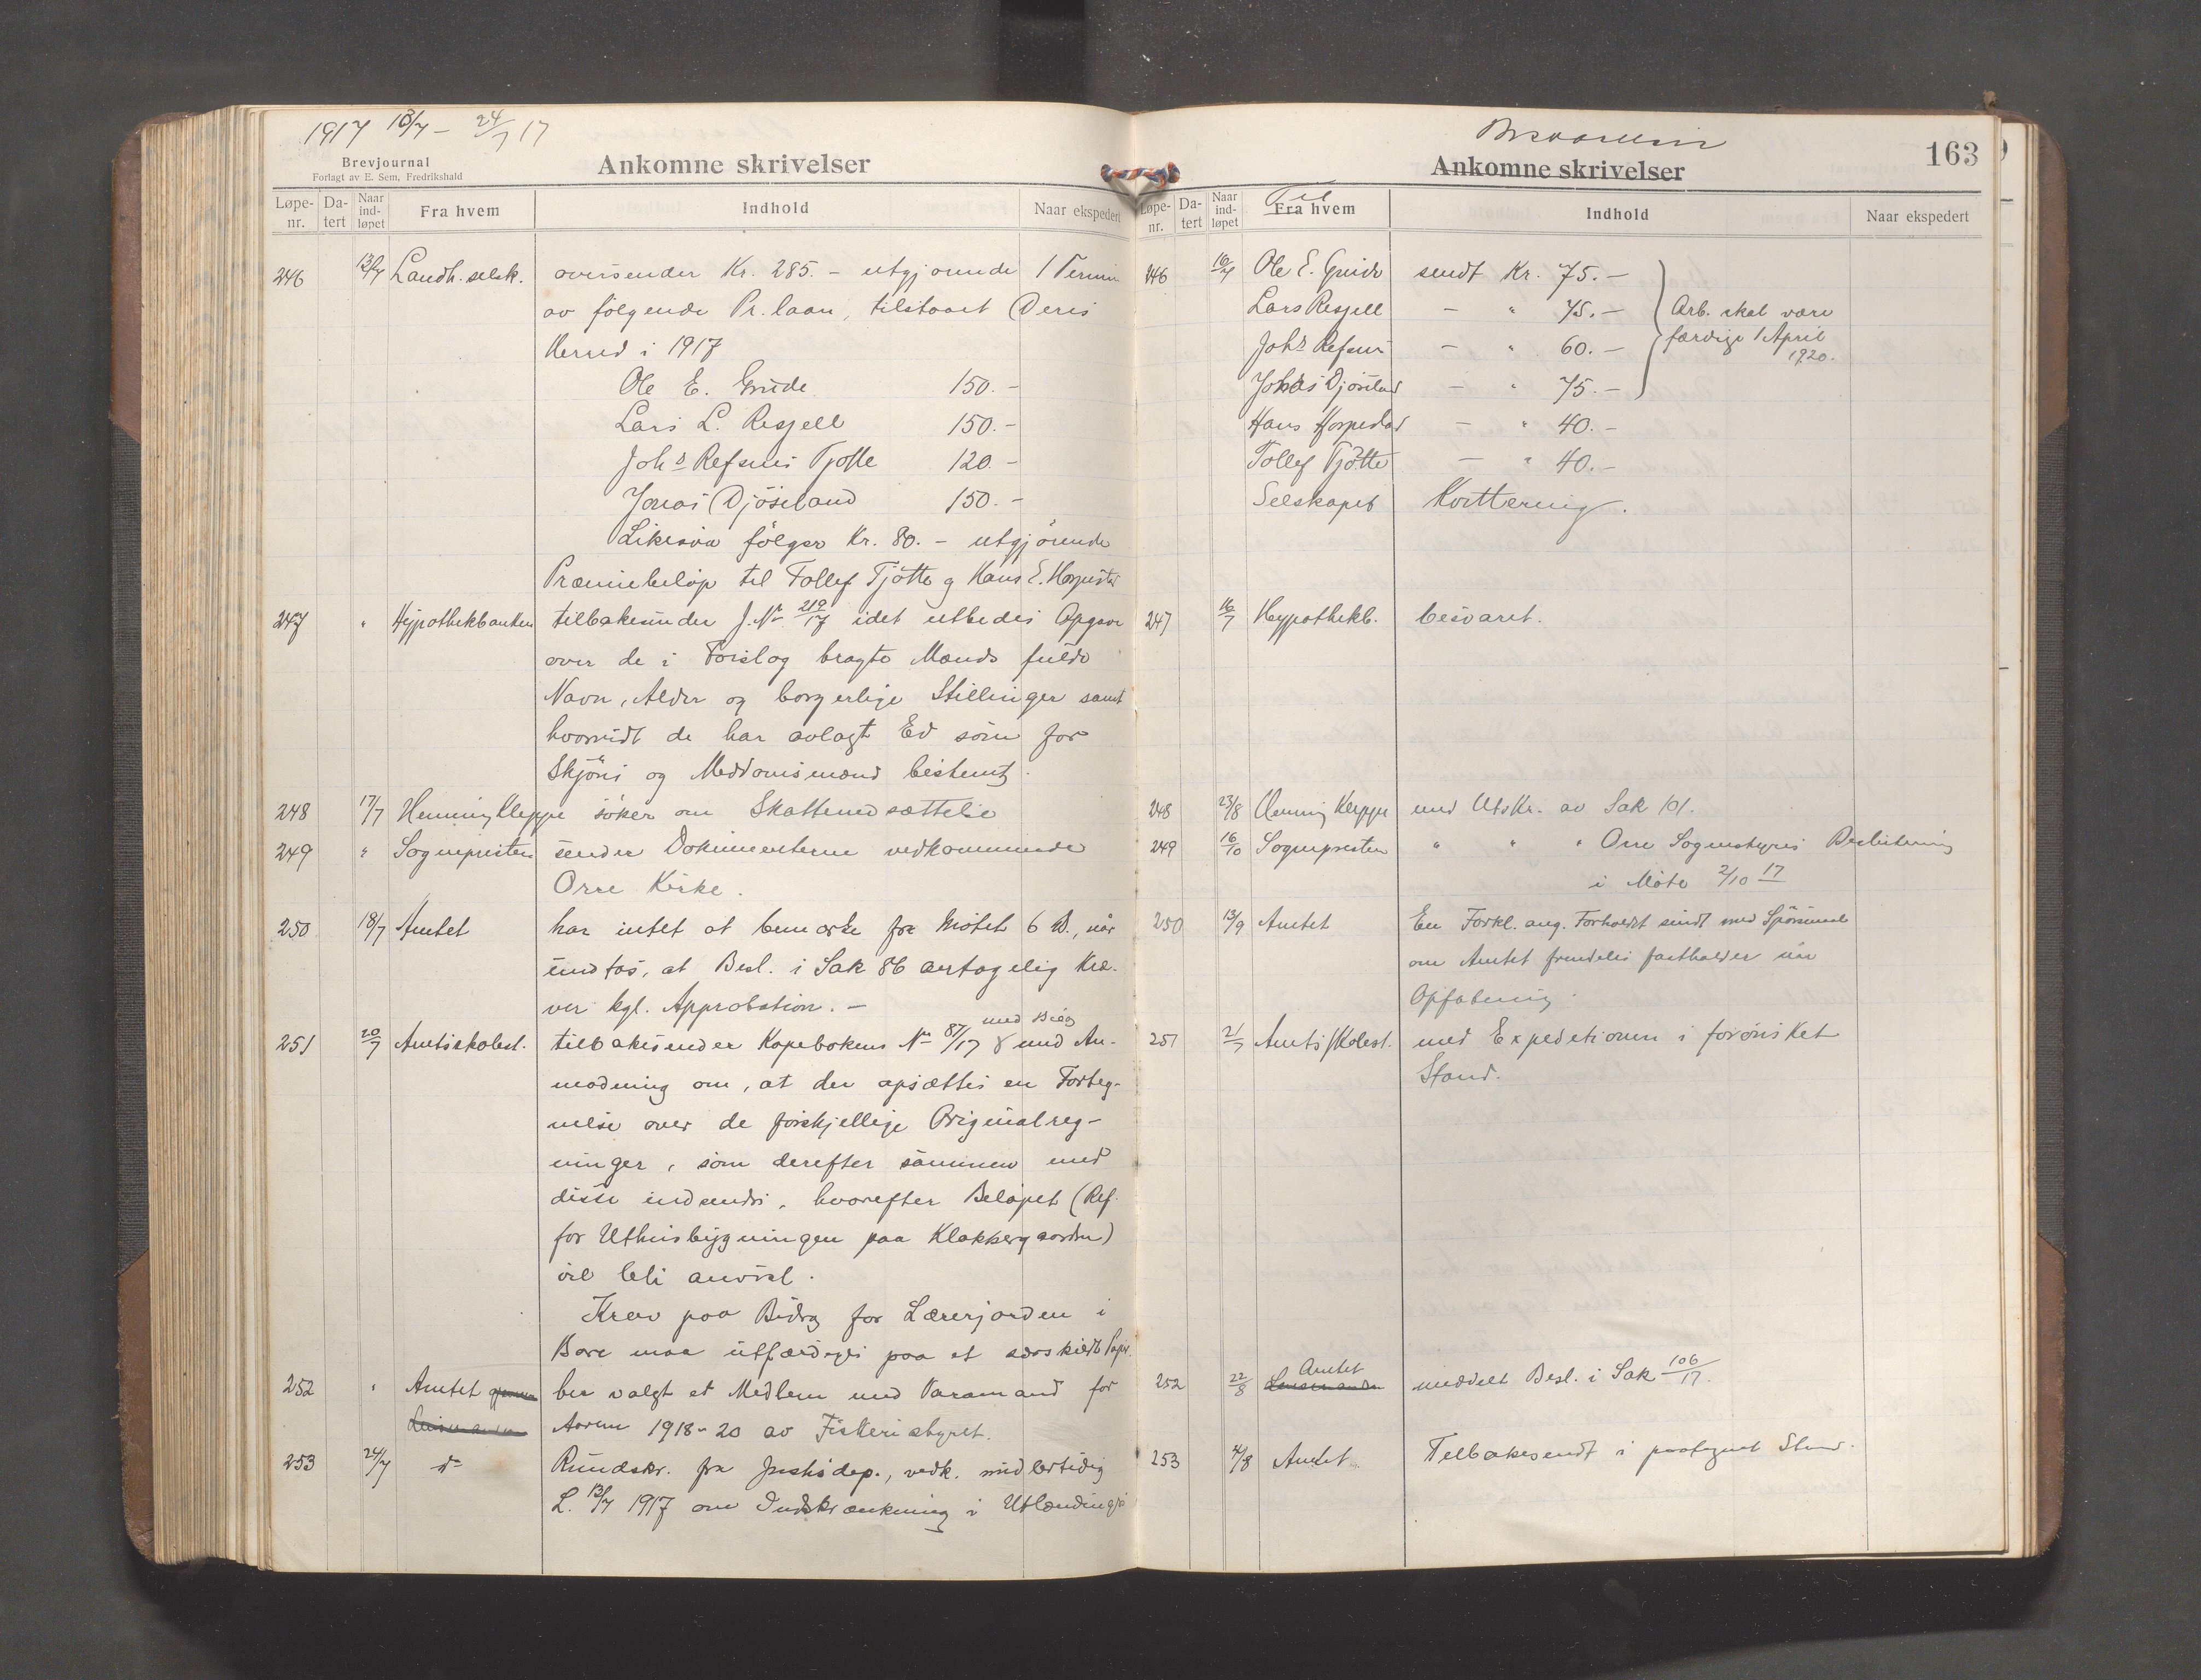 1917 13/7 – 24/7 17
Brevjournal
Forlagt av E. Sem, Fredrikshald
Ankomne skrivelser
Løpe-nr. Da-tert Naar ind-løpet Fra hvem Indhold Naar ekspedert
246 13/7 Landh. selsk. oversender Kr. 285.– utgjørende 1 Termin
av følgende Pr. laan, tilstaaet Deres
Herred i 1917
Ole E. Grude 150.–
Lars L. Resjell 150.–
Johs Refsnes Tjøtte 120.–
Jonas Djøseland 150.–
Likesaa følger Kr. 80.– utgjørende
Præmiebeløp til Tollef Tjøtte og Hans E. Horpestad
247 " Hypothekbanken tilbakesender J. Nr 219/17 idet utbedes Opgave
over de i Forslag bragte Mænds fulde
Navn, Alder og borgerlige Stillinger samt
hvorvidt de har avlagt Ed som for
Skjøns og Meddomsmænd bestemt.
248 17/7 Henning Kleppe søker om Skattenedsættelse
249 " Sognepresten sender Dokumenterne vedkommende
Orre Kirke.
250 18/7 Amtet har intet at bemerke fra Møtet 6 D., når
undtas, at Besl. i Sak 86 antagelig kræ-
ver kgl. Approbation. –
med Bilag
251 20/7 Amtsskolest. tilbakesender Kopebokens Nr 87/17 & med An-
modning om, at der opsættes en Forteg-
nelse over de forskjellige Originalreg-
ninger, som derefter sammen med
disse indsendes, hvorefter Beløpet (Ref.
for Uthusbygningen paa Klokkergaarden)
vil bli anvist.
Krav paa Bidrag for Lærerjorden i
Bore maa utfærdiges paa et særskildt Papir.
252 " Amtet ber valgt et Medlem med Varamand for
Aarene 1918–20 av Fiskeristyret.
253 24/7 do Rundskr. fra Justisdep., vedk. midlertidig
L. 13/7 1917 om Indskrænkning i Utlændinges
Besvarelser
Ankomne skrivelser
163
Løpe-nr. Da-tert Naar ind-løpet Til Fra hvem Indhold Naar ekspedert
246 16/7 Ole E. Grude sendt Kr. 75.–
Lars Resjell – " 75.– Arb. skal være
Johs Refsnes – " 60.– færdige 1 April
1920.
Johs Djøseland – " 75.–
Hans Horpestad – " 40.–
Tollef Tjøtte – " 40.–
Selskapet Kvittering.
247 16/7 Hypothekb. besvaret.
248 23/8 Henning Kleppe med Utskr. av Sak 101.
249 16/10 Sognepresten " " " Orre Sognestyres Beslutning
i Møte 2/10 17
250 13/9 Amtet En Forkl. ang. Forholdet sendt med Spørsmaal
om Amtet fremdeles fastholder sin
Opfatning.
251 21/7 Amtsskolest. med Expeditionen i forønsket
Stand.
Amtet
252 22/8 meddelt Besl. i Sak 106/17.
253 4/8 Amtet Tilbakesendt i paategnet Stand.